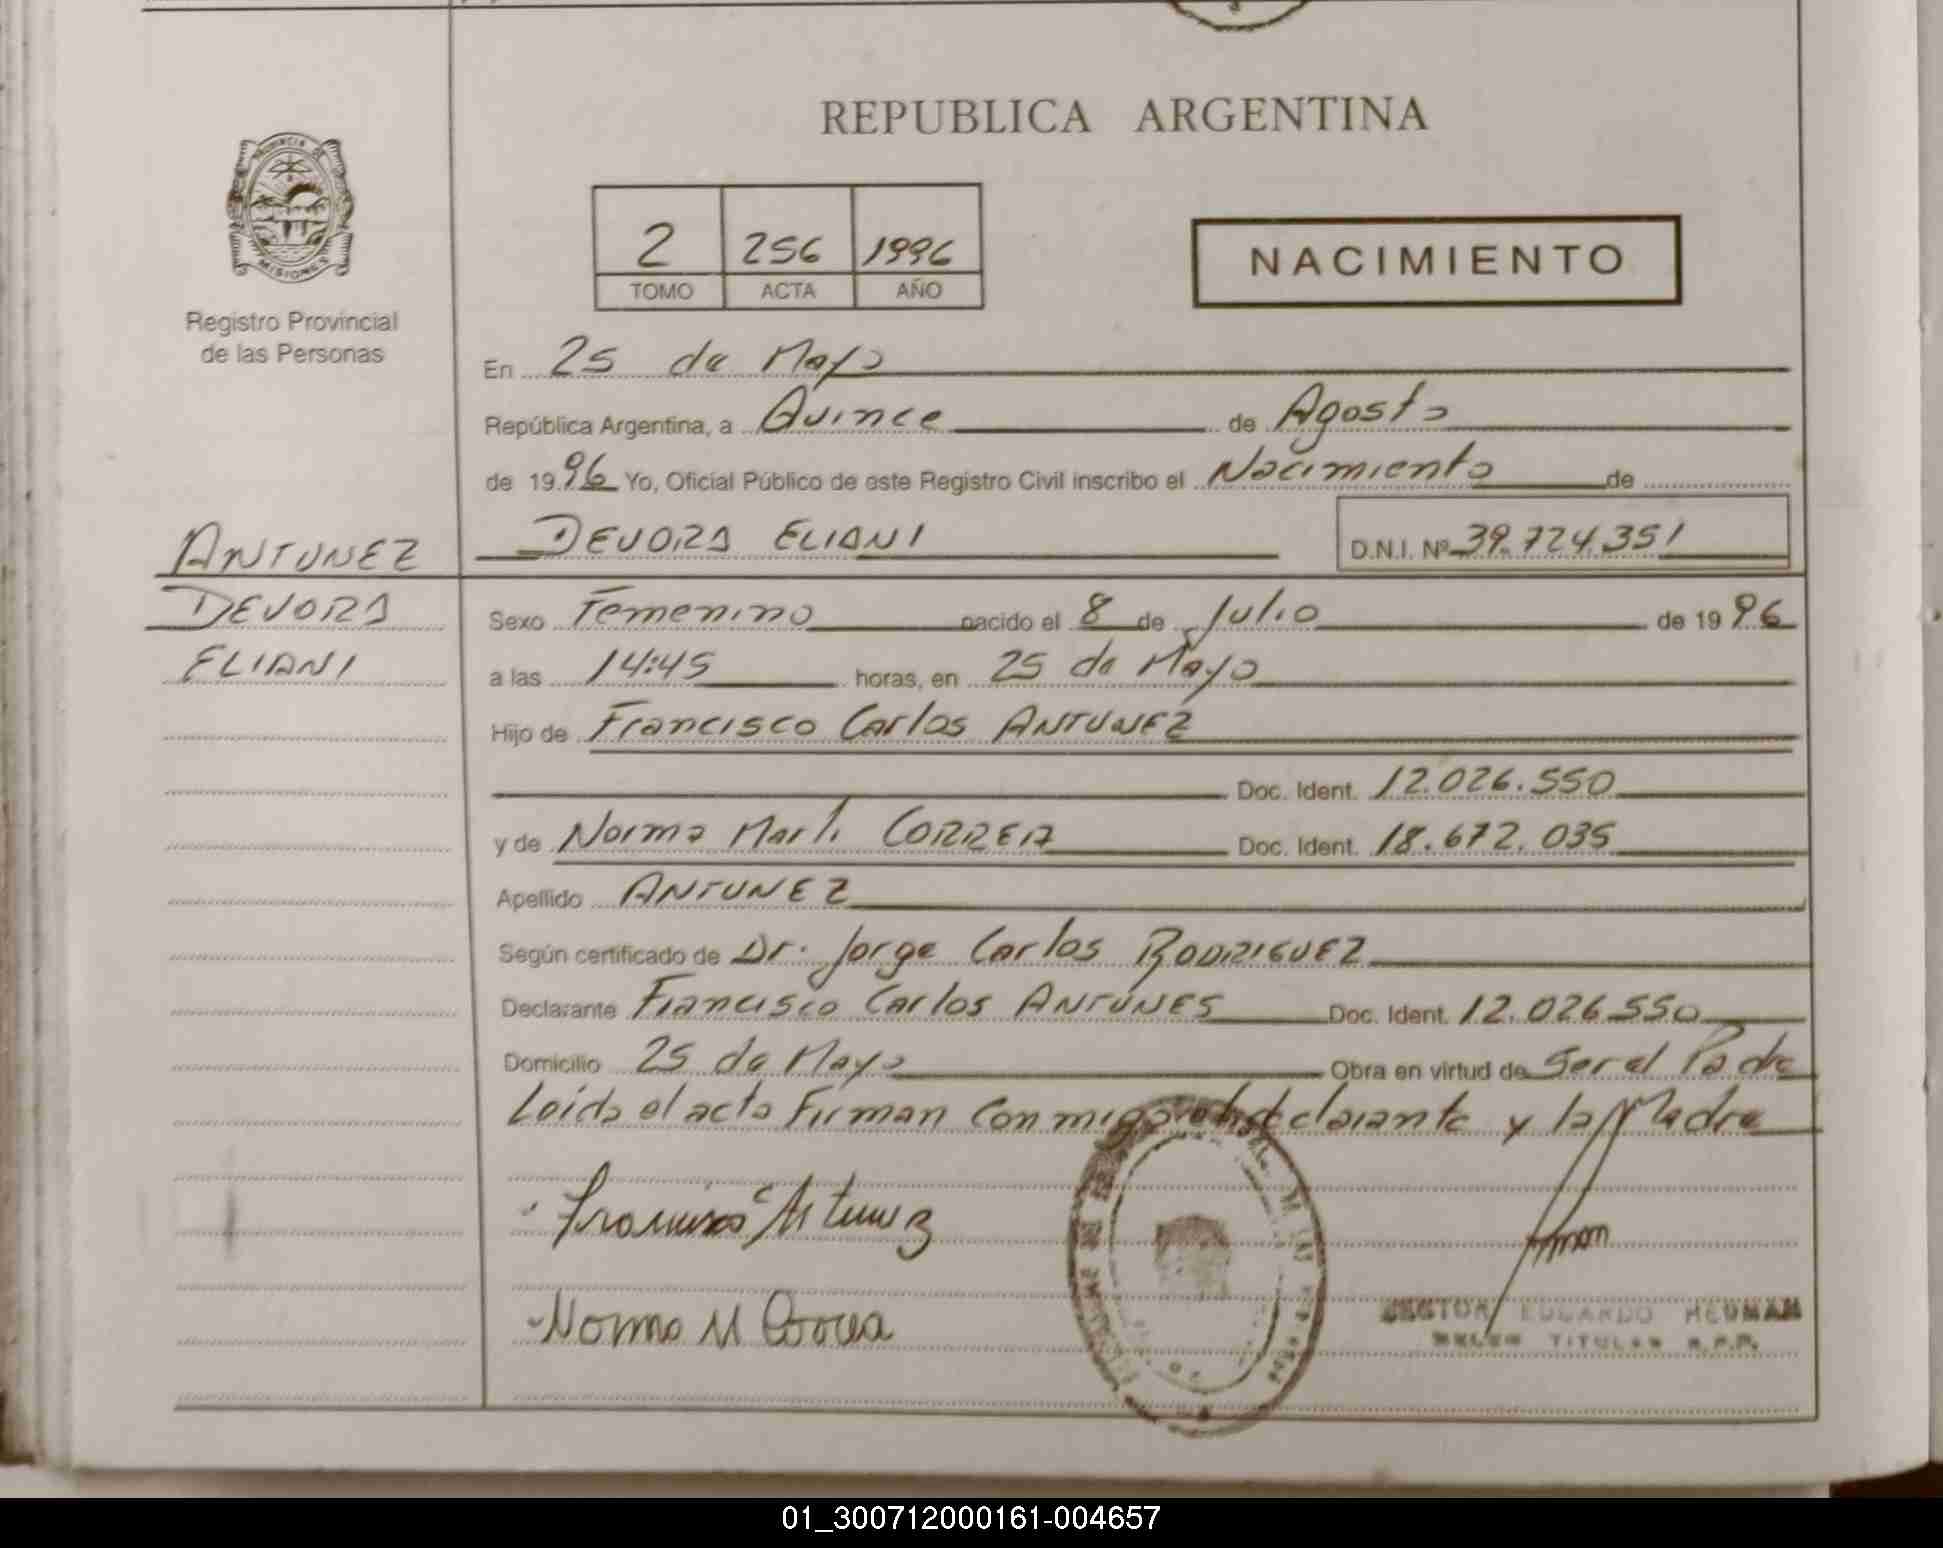 REPUBLICA ARGENTINA
PROVINCIA DE
MISIONES
Registro Provincial
de las Personas
2 256 1996
TOMO ACTA AÑO
NACIMIENTO
En 25 de Mayo
República Argentina, a Quince de Agosto
de 1996 Yo, Oficial Público de este Registro Civil inscribo el Nacimiento de
DEVORA ELIANI D.N.I. Nº 39.724.351
ANTUNEZ
DEVORA
ELIANI
Sexo Femenino nacido el 8 de Julio de 1996
a las 14:45 horas, en 25 de Mayo
Hijo de Francisco Carlos ANTUNEZ
Doc. Ident. 12.026.550
y de Norma Marli CORREA Doc. Ident. 18.672.035
Apellido ANTUNEZ
Según certificado de Dr. Jorge Carlos RODRIGUEZ
Declarante Francisco Carlos ANTUNES Doc. Ident. 12.026.550
Domicilio 25 de Mayo Obra en virtud de Ser el Padre
Leida el acta Firman Conmigo el declarante y la Madre
Francisco Antunez
Norma M Correa
EDUARDO
TITULAR R.P.P.
01_300712000161-004657